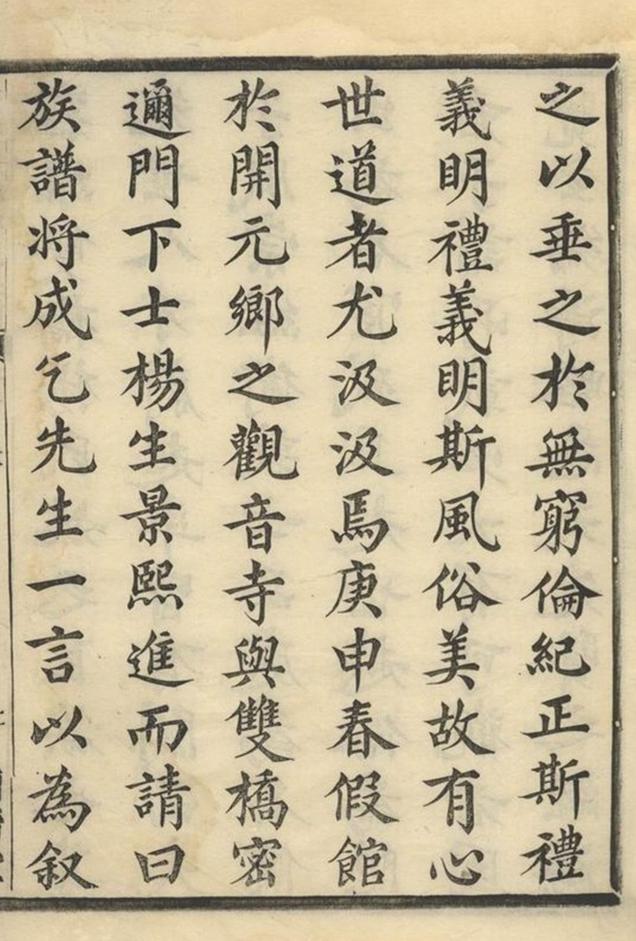 之以垂之於無窮倫紀正斯禮
義明禮義明斯風俗美故有心
世道者尤汲汲焉庚申春假館
於開元鄉之觀音寺與雙橋密
邇門下士楊生景熙進而請曰
族譜將成乞先生一言以為叙